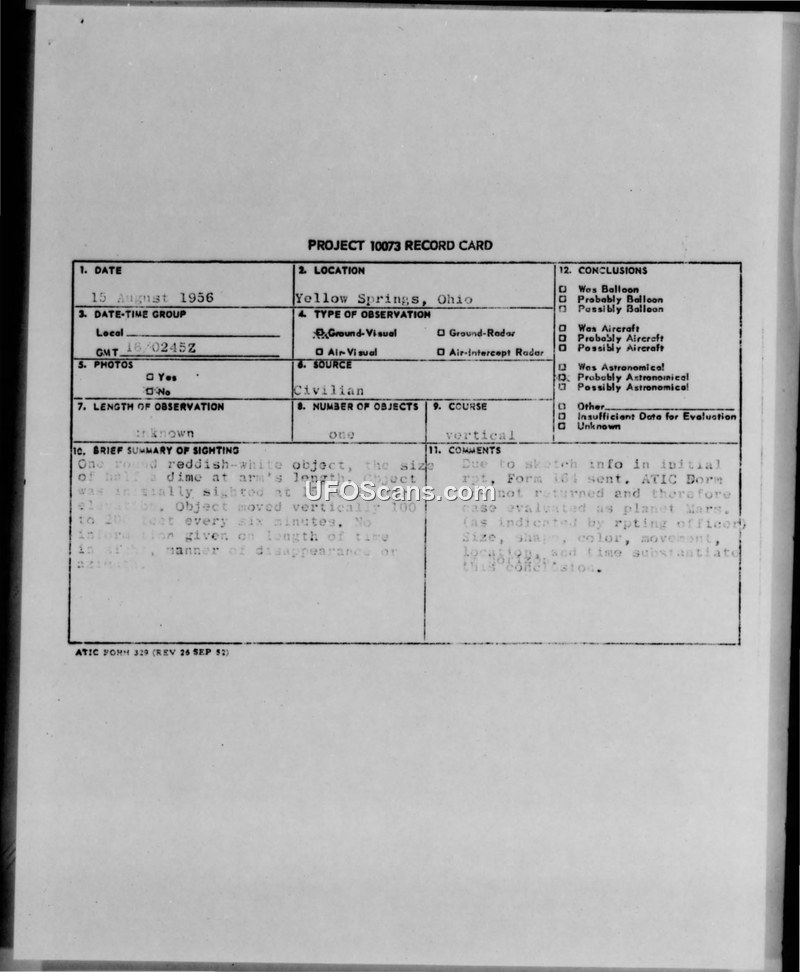 PROJECT 10073 RECORD CARD
1. DATE
15 August 1956
2. LOCATION
Yellow Springs, Ohio
12. CONCLUSIONS
Was Balloon
Probably Balloon
Possibly Balloon
Was Aircraft
Probably Aircraft
Possibly Aircraft
Was Astronomical
Probably Astronomical
Possibly Astronomical
Other
Insufficient Data for Evaluation
Unknown
3. DATE-TIME GROUP
Local
GMT 16/0245Z
4. TYPE OF OBSERVATION
Ground-Visual
Ground-Radar
Air-Visual
Air-Intercept Radar
5. PHOTOS
Yes
No
6. SOURCE
Civilian
7. LENGTH OF OBSERVATION
unknown
8. NUMBER OF OBJECTS
one
9. COURSE
vertical
10. BRIEF SUMMARY OF SIGHTING
One round reddish-white object, the size
of half a dime at arm's length. Object
was initially sighted at
elevation. Object moved vertically 100
to 200 feet every six minutes. No
information given on length of time
in sight, manner of disappearance or
11. COMMENTS
Due to sketch info in initial
rpt, Form 164 sent. ATIC Form
not returned and therefore
case evaluated as planet Mars.
(as indicated by rpting officer)
Size, shape, color, movement,
location, and time substantiate
this conclusion.
ATIC FORM 329 (REV 26 SEP 52)
UFOScans.com